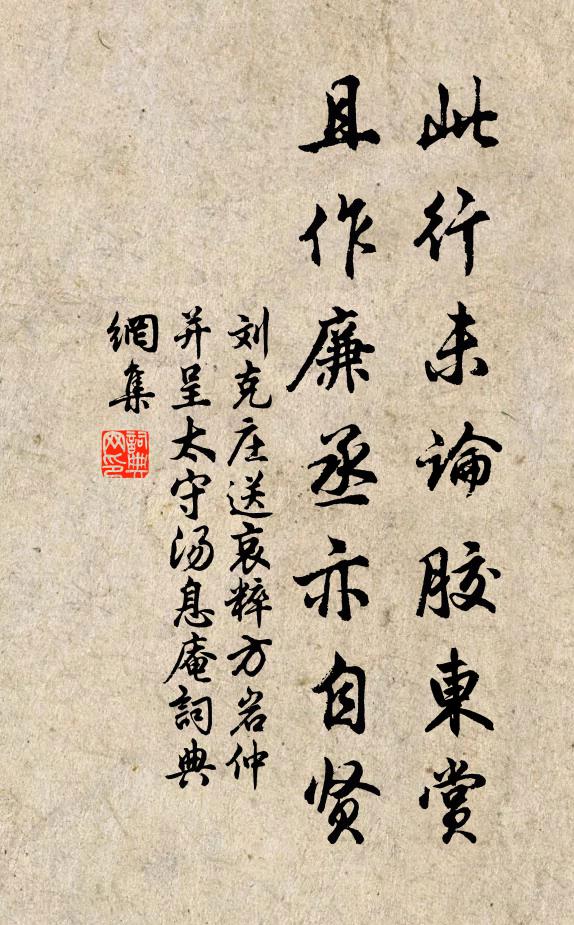 此行未論胶東赏
且作廉丞亦自贤
刘克庄送哀粹方岩仲
并呈太守汤息庵詞典
網集
詞典网印